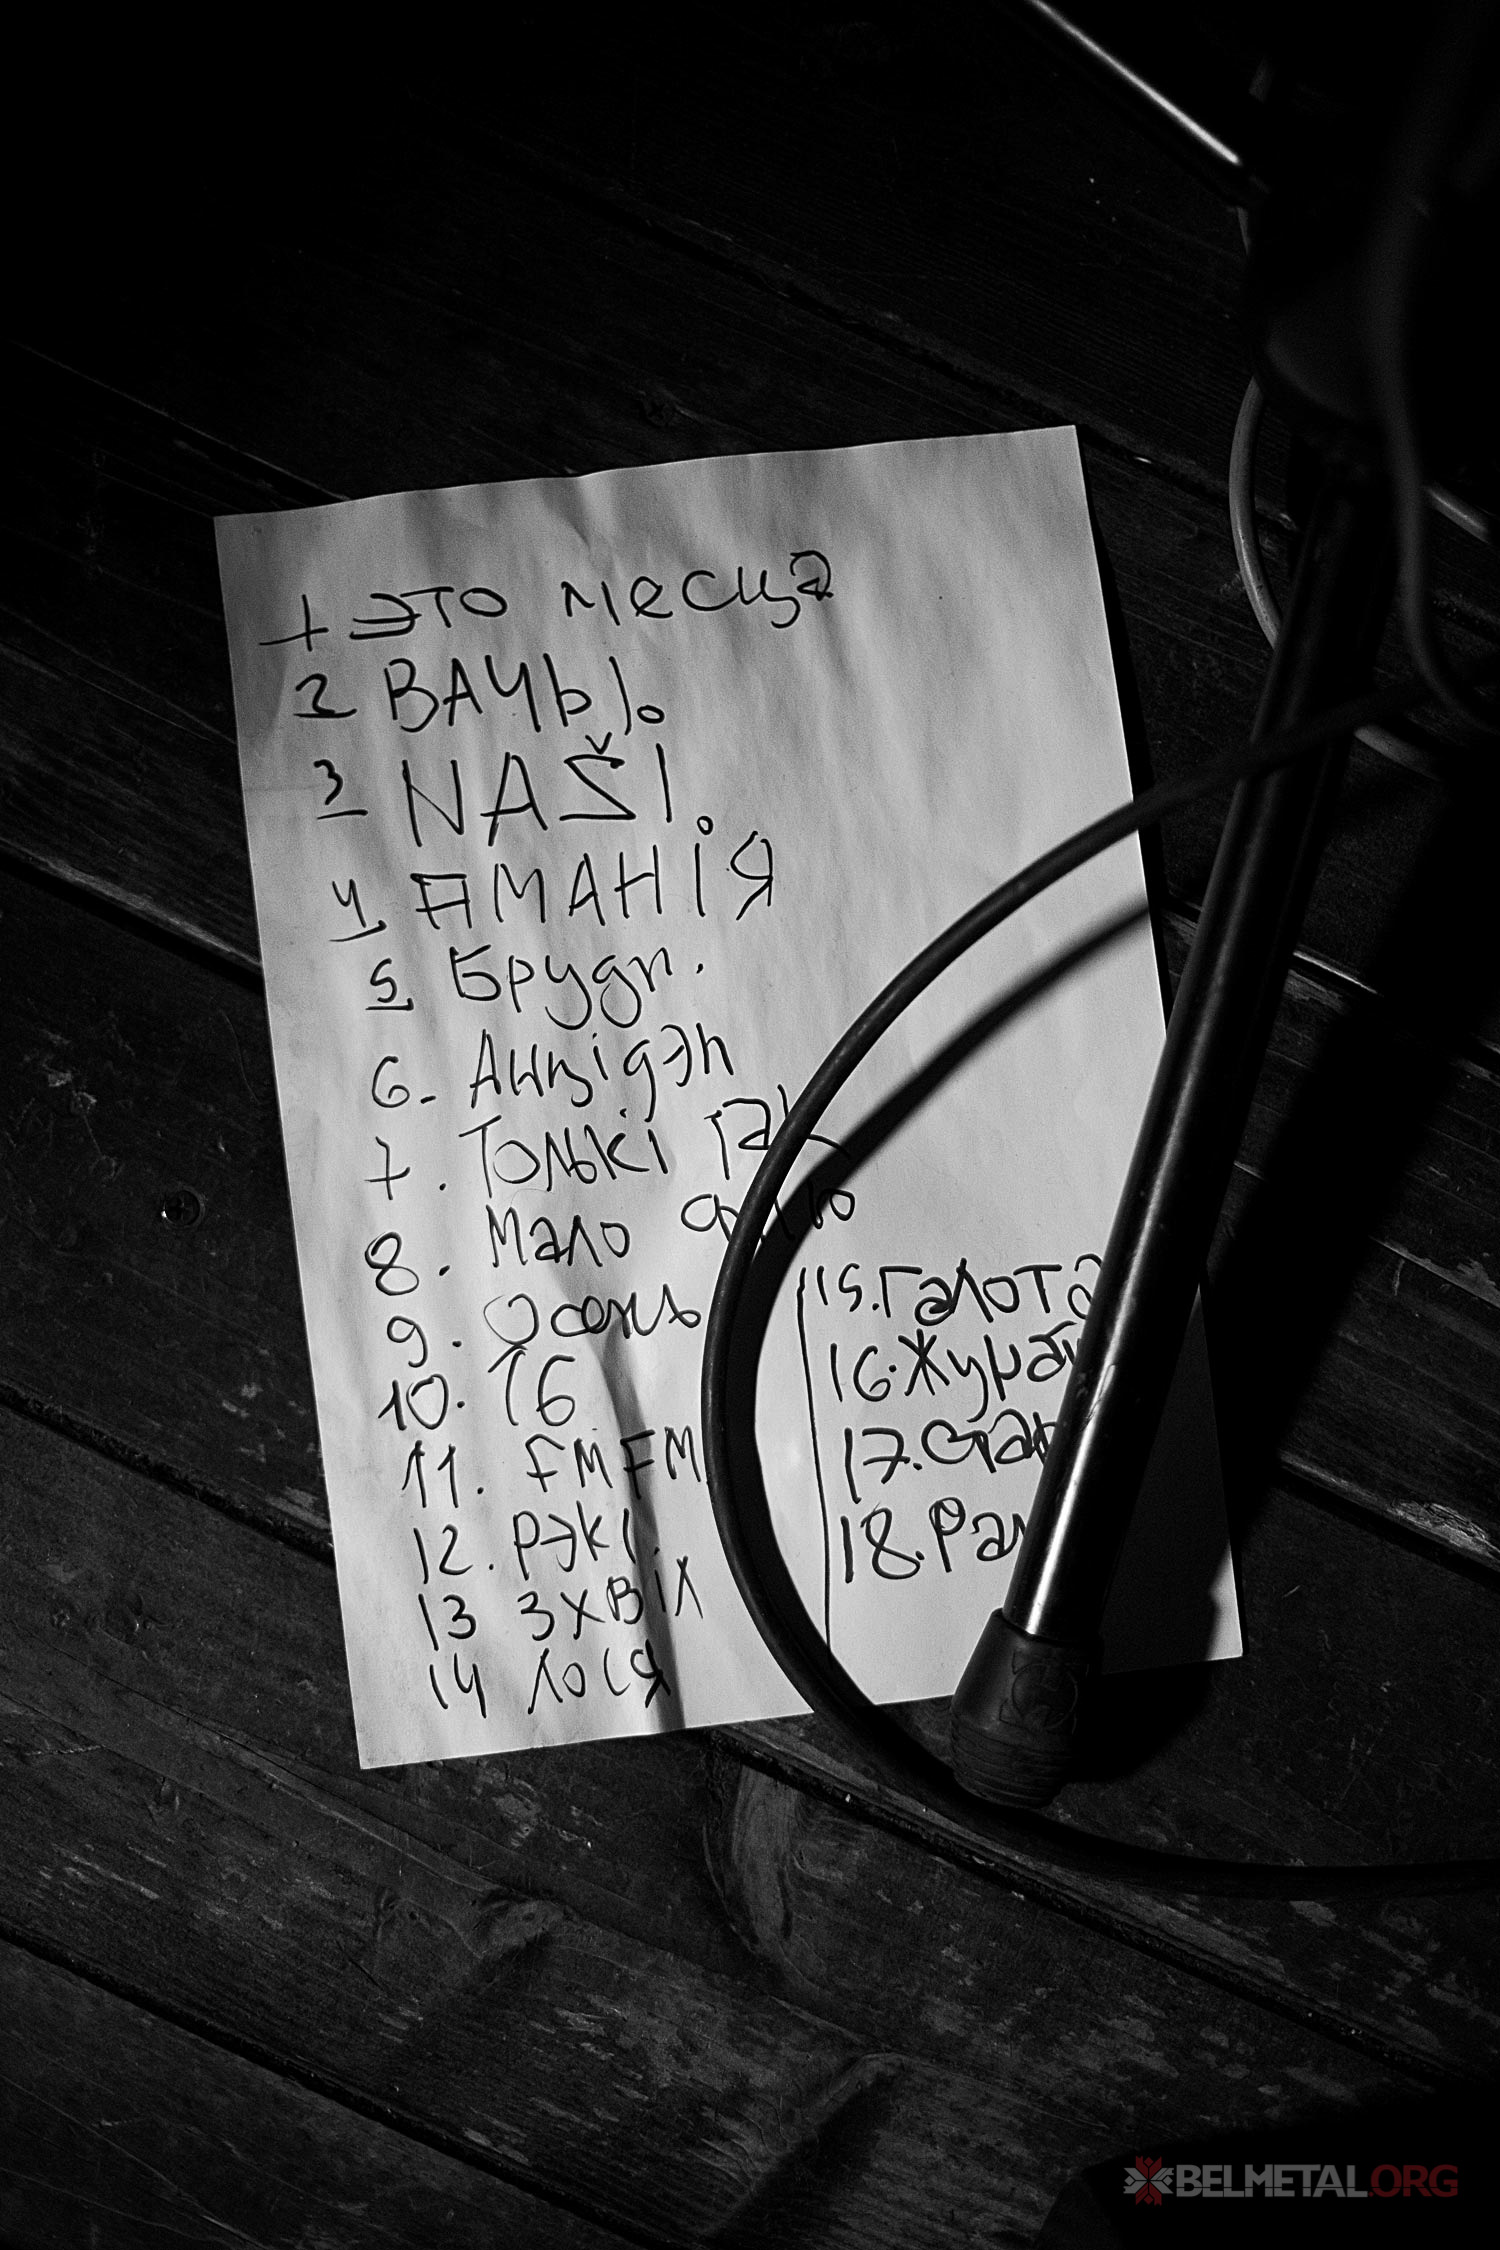 1 ЭТО месца
2 ВАЧЫ.
3 NAŠI.
4 АМАНІЯ
5 Брудл.
6. Анцідэп
7. Толькі так
8. Мало
9. Осень
10. 16
11. FM FM
12. РЭКІ.
13 3 ХВІЛ
14 ЛОСЯ
15. Галота
16. Жураў
17. Стар
18. Рам
BELMETAL.ORG